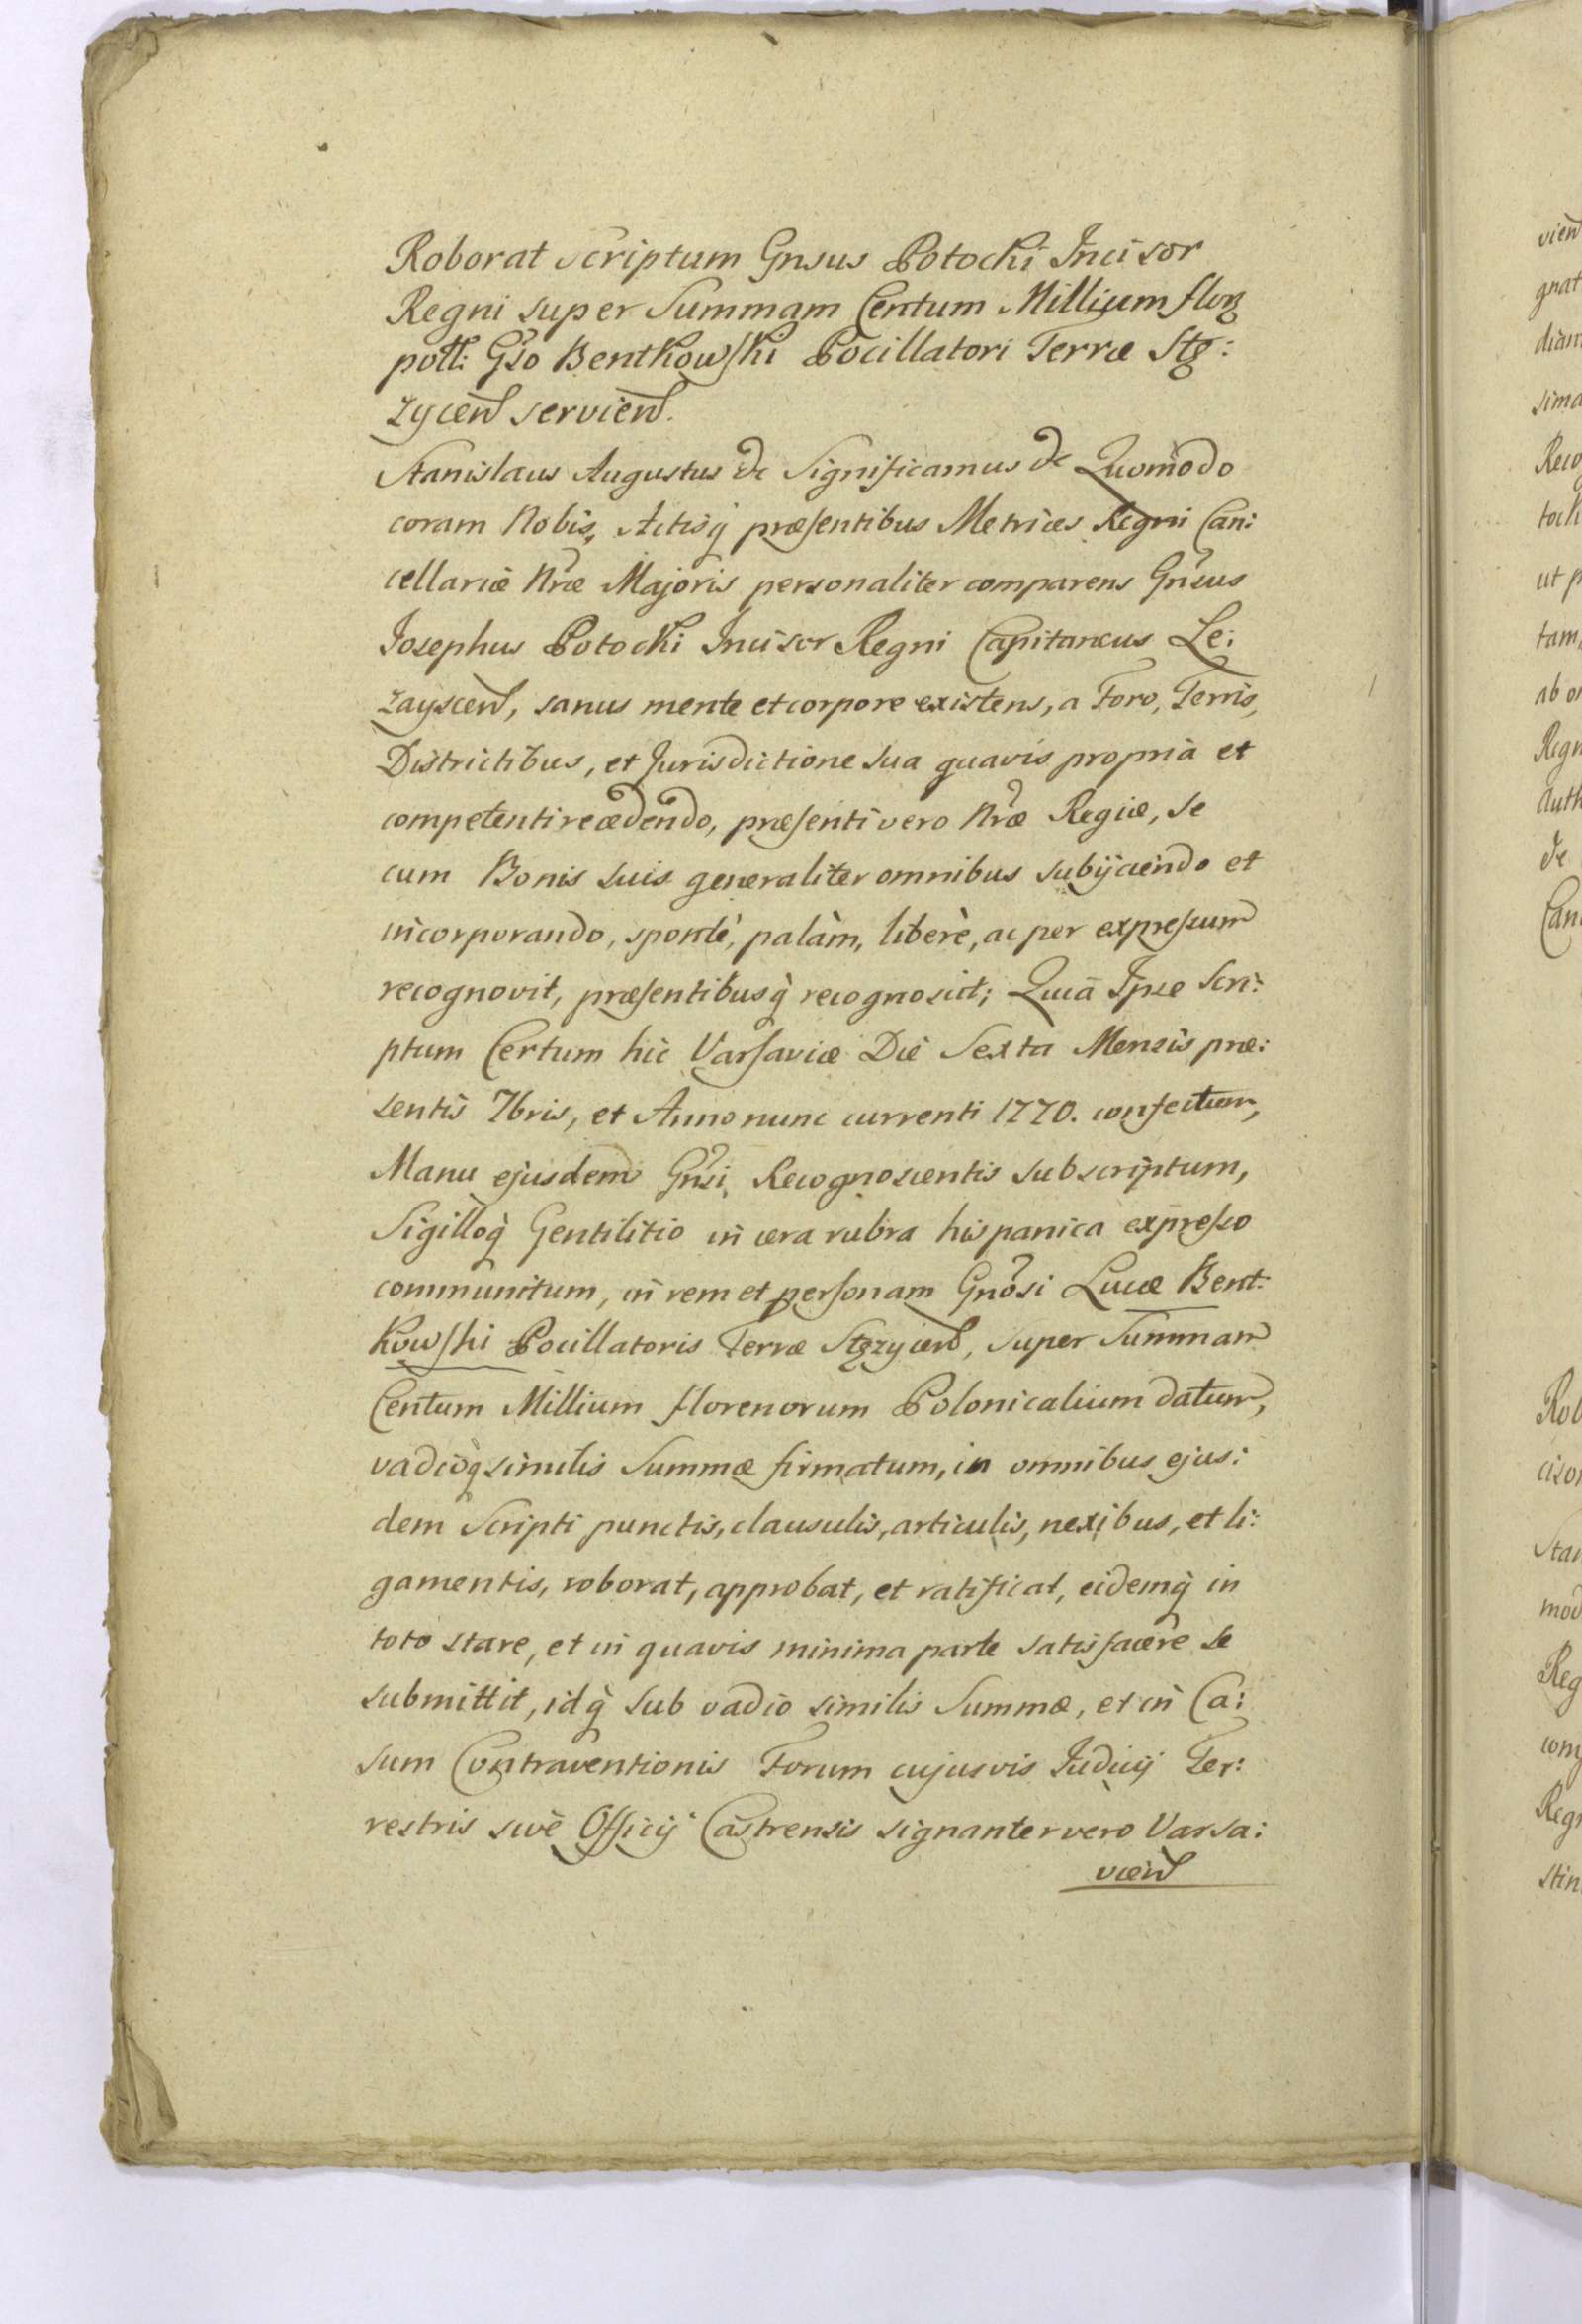 Roborat Scriptum Gnsus Potocki Incisor
Regni super Summam Centum Millium flor
poll: Gso Bentkowski Pocillatori Terræ Stę:
zycen servien.
Stanislaus Augustus &c Significamus &c Quomodo
coram Nobis, Actisq̀ præsentibus Metrices Regni Can:
cellariæ Nræ Majoris personaliter comparens Gnsus
Josephus Potocki Incisor Regni Capitaneus Le:
zayscen, sanus mente et corpore existens, a Foro, Terris,
Districtibus, et Jurisdictione sua quavis propria et
competenti recedendo, præsenti vero Nræ Regiæ, se
cum Bonis suis generaliter omnibus subijciendo et
incorporando, spontè, palàm, liberè, ac per expressum
recognovit, præsentibusq̀ recognoscit; Quia Ipse Scri:
ptum Certum hic Varsaviæ Die Sexta Mensis præ:
sentis 7bris, et Anno nunc currenti 1770. confectum,
Manu ejusdem Gnsi Recognoscentis subscriptum,
Sigilloq̀ Gentilitio in cera rubra hispanica expresso
communitum, in rem et personam Gnosi Lucæ Bent:
kowski Pocillatoris Terræ Stęzycen, super Summam
Centum Millium florenorum Polonicalium datum,
vadioq̀ similis Summæ firmatum, in omnibus ejus:
dem Scripti punctis, clausulis, articulis, nexibus, et li:
gamentis, roborat, approbat, et ratificat, eidemq̀ in
toto stare, et in quavis minima parte satisfacere se
submittit, idq̀ sub vadio similis Summæ, et in Ca:
sum Contraventionis Forum cujusvis Judicij Ter:
restris sivè Officij Castrensis signanter vero Varsa:
vien